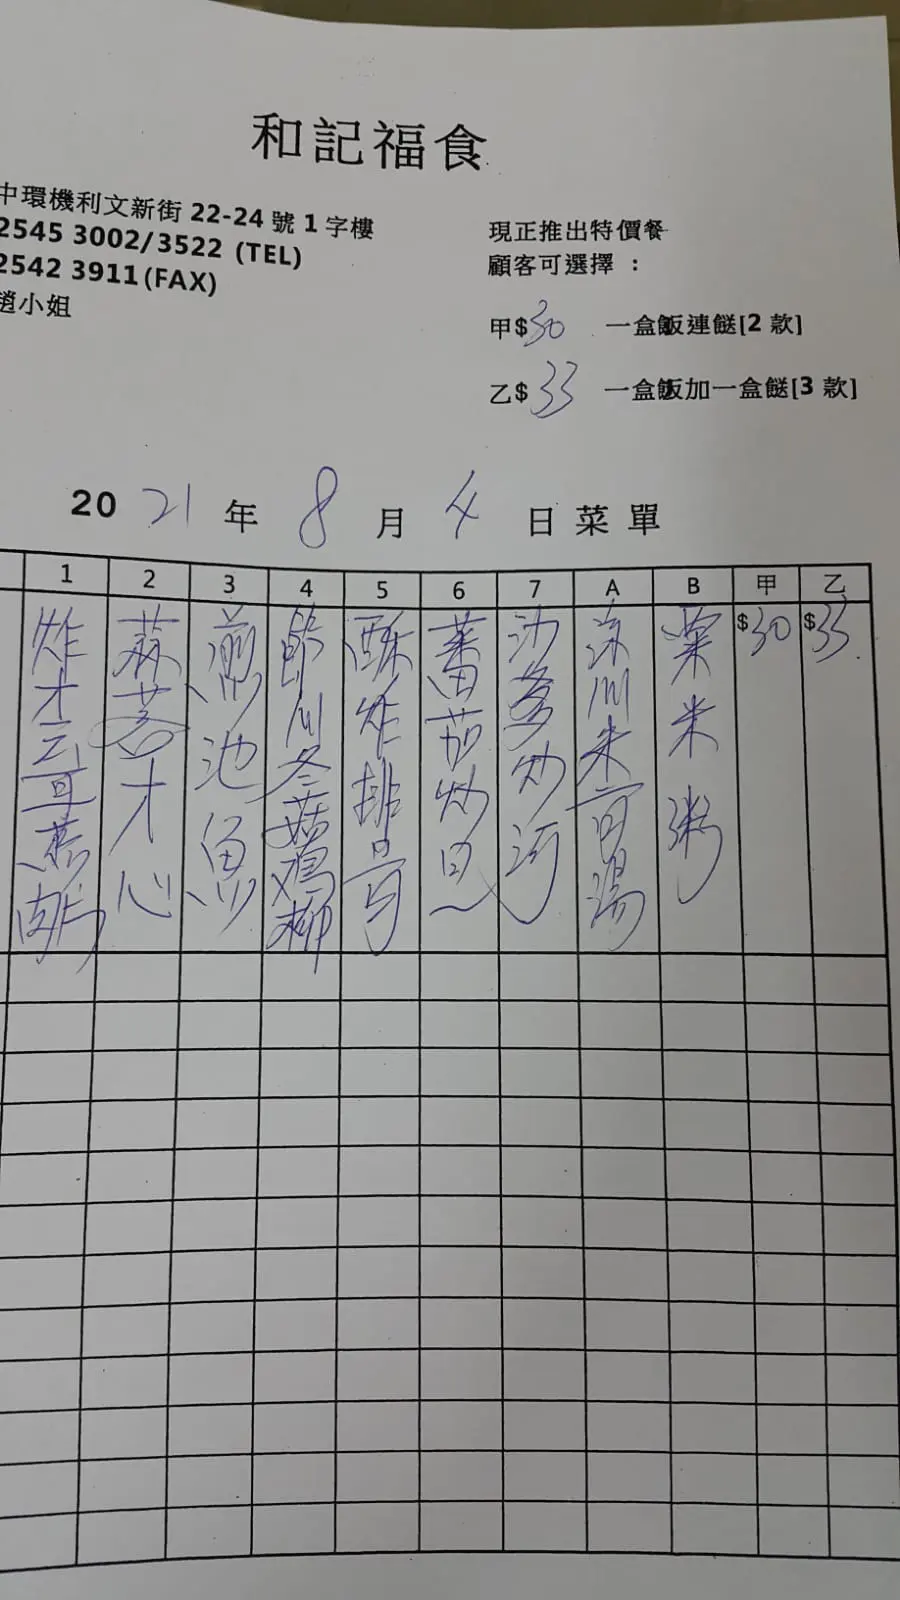 和記福食
中環機利文新街 22-24 號 1 字樓
2545 3002/3522 (TEL)
2542 3911(FAX)
趙小姐
現正推出特價餐
顧客可選擇 :
甲$30 一盒飯連餸[2 款]
乙$ 33 一盒飯加一盒餸[3 款]
20 21 年 8 月 4 日 菜 單
1 2 3 4 5 6 7 A B 甲 乙
炸
蒜蓉才心
煎池魚
冬菇鸡柳
酥炸排骨
蕃茄炒旦
沙爹炒河
粟米粥
$30
$33